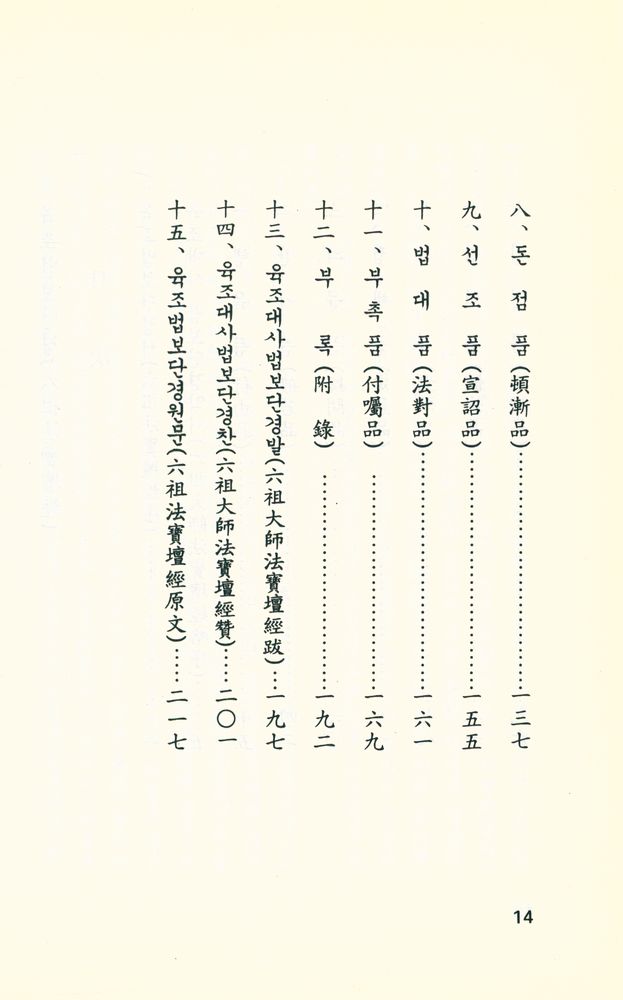 八、돈점품(頓漸品)…………………………一三七
九、선조품(宣詔品)…………………………一五五
十、법대품(法對品)…………………………一六一
十一、부촉품(付囑品)…………………………一六九
十二、부록(附錄)…………………………一九二
十三、육조대사법보단경발(六祖大師法寶壇經跋)…一九七
十四、육조대사법보단경찬(六祖大師法寶壇經贊)……二〇一
十五、육조법보단경원문(六祖法寶壇經原文)……二一七
14